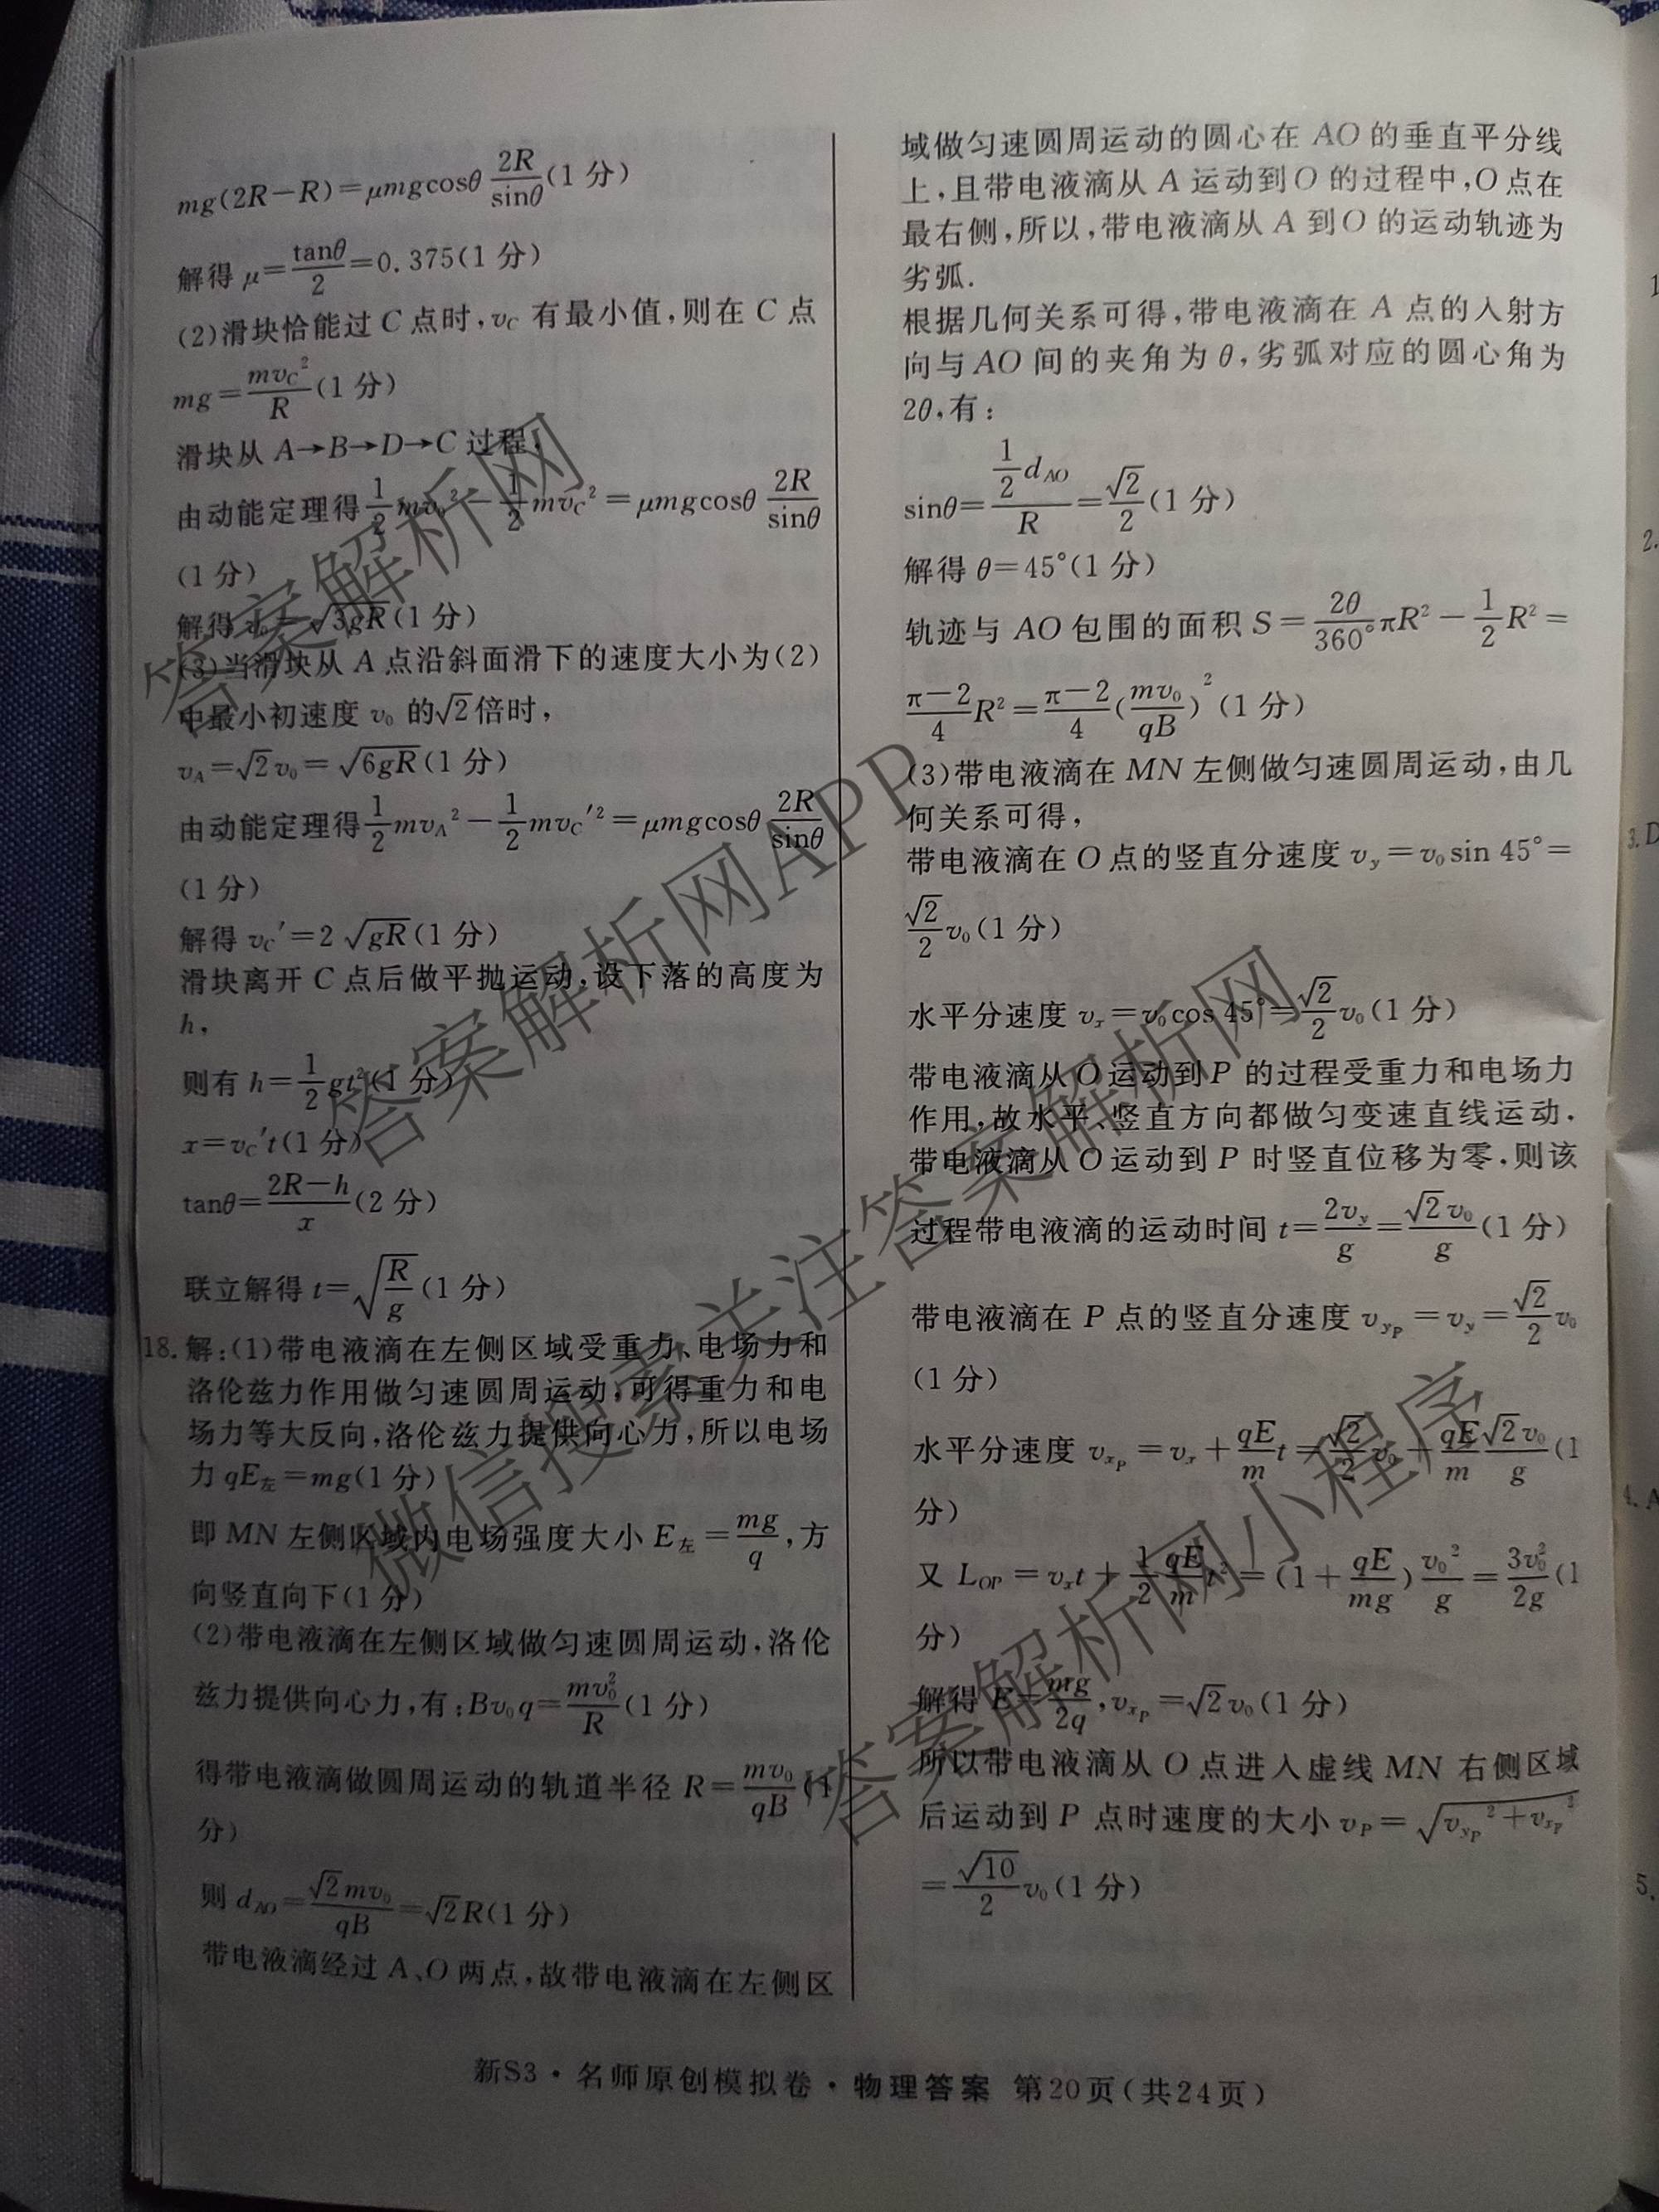 mg(2R－R)＝μmgcosθ 2R/sinθ(1 分)
解得 μ＝tanθ/2＝0.375(1 分)
(2)滑块恰能过 C 点时,v_C 有最小值,则在 C 点
mg＝mv_C²/R(1 分)
滑块从 A→B→D→C 过程,
由动能定理得 1/2 mv₀²－1/2 mv_C²＝μmgcosθ 2R/sinθ
(1 分)
解得 v₀＝√(3gR)(1 分)
(3)当滑块从 A 点沿斜面滑下的速度大小为(2)
中最小初速度 v₀ 的√2倍时,
v_A＝√2v₀＝√(6gR)(1 分)
由动能定理得 1/2 mv_A²－1/2 mv_C′²＝μmgcosθ 2R/sinθ
(1 分)
解得 v_C′＝2√(gR)(1 分)
滑块离开 C 点后做平抛运动,设下落的高度为
h,
则有 h＝1/2 gt²(1 分)
x＝v_C′t(1 分)
tanθ＝(2R－h)/x(2 分)
联立解得 t＝√(R/g)(1 分)
18. 解:(1)带电液滴在左侧区域受重力、电场力和
洛伦兹力作用做匀速圆周运动,可得重力和电
场力等大反向,洛伦兹力提供向心力,所以电场
力 qE左＝mg(1 分)
即 MN 左侧区域内电场强度大小 E左＝mg/q,方
向竖直向下(1 分)
(2)带电液滴在左侧区域做匀速圆周运动,洛伦
兹力提供向心力,有:Bv₀q＝mv₀²/R(1 分)
得带电液滴做圆周运动的轨道半径 R＝mv₀/qB(1
分)
则 d_AO＝√2mv₀/qB＝√2R(1 分)
带电液滴经过 A、O 两点,故带电液滴在左侧区
域做匀速圆周运动的圆心在 AO 的垂直平分线
上,且带电液滴从 A 运动到 O 的过程中,O 点在
最右侧,所以,带电液滴从 A 到 O 的运动轨迹为
劣弧.
根据几何关系可得,带电液滴在 A 点的入射方
向与 AO 间的夹角为 θ,劣弧对应的圆心角为
2θ,有:
sinθ＝(1/2 d_AO)/R＝√2/2(1 分)
解得 θ＝45°(1 分)
轨迹与 AO 包围的面积 S＝2θ/360° πR²－1/2 R²＝
(π－2)/4 R²＝(π－2)/4 (mv₀/qB)²(1 分)
(3)带电液滴在 MN 左侧做匀速圆周运动,由几
何关系可得,
带电液滴在 O 点的竖直分速度 v_y＝v₀sin 45°＝
√2/2 v₀(1 分)
水平分速度 v_x＝v₀cos 45°＝√2/2 v₀(1 分)
带电液滴从 O 运动到 P 的过程受重力和电场力
作用,故水平、竖直方向都做匀变速直线运动.
带电液滴从 O 运动到 P 时竖直位移为零,则该
过程带电液滴的运动时间 t＝2v_y/g＝√2v₀/g(1 分)
带电液滴在 P 点的竖直分速度 v_yP＝v_y＝√2/2 v₀
(1 分)
水平分速度 v_xP＝v_x＋qE/m t＝√2/2 v₀＋qE/m √2v₀/g(1
分)
又 L_OP＝v_x t＋1/2 qE/m t²＝(1＋qE/mg) v₀²/g＝3v₀²/2g(1
分)
解得 E＝mg/2q,v_xP＝√2v₀(1 分)
所以带电液滴从 O 点进入虚线 MN 右侧区域
后运动到 P 点时速度的大小 v_P＝√(v_yP²＋v_xP²)
＝√10/2 v₀(1 分)
新S3·名师原创模拟卷·物理答案 第20页(共24页)
1
2.
3. D
4. A
5.
答案解析网
答案解析网APP
微信搜索关注答案解析网
答案解析网小程序